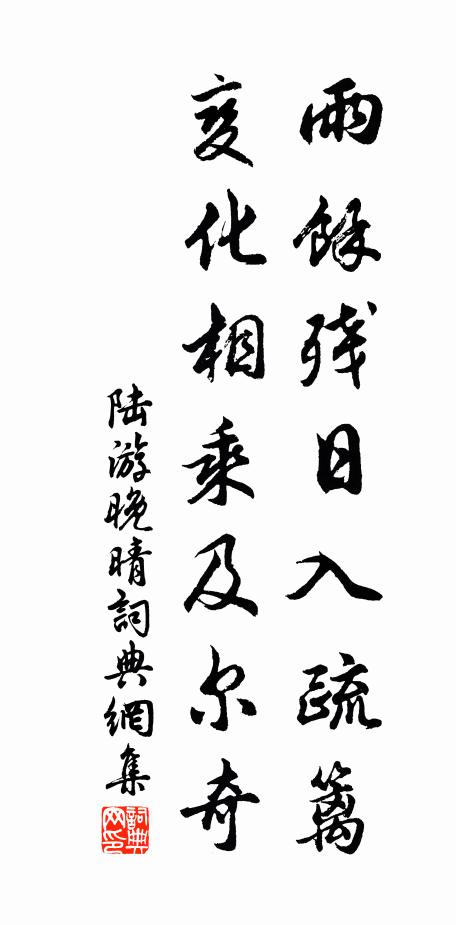 雨餘残日入疏篱
变化相乘及尔奇
陆游晚晴詞典網集
詞典网印